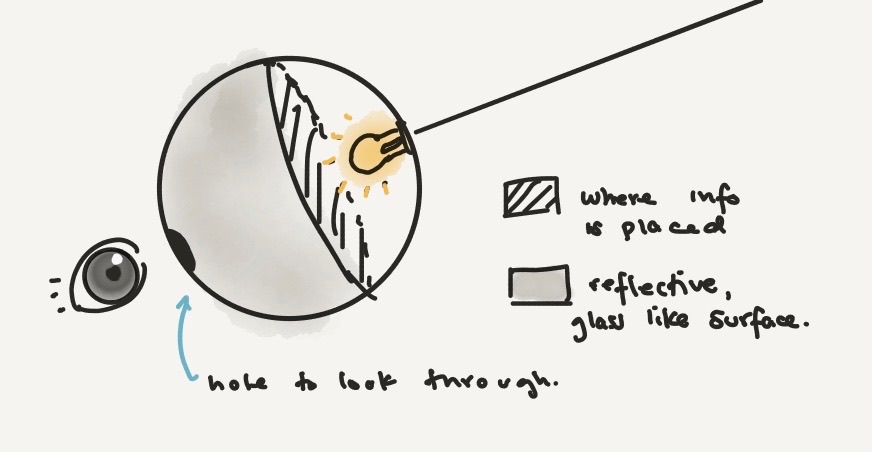 where info
is placed
reflective,
glass like surface.
hole to look through.